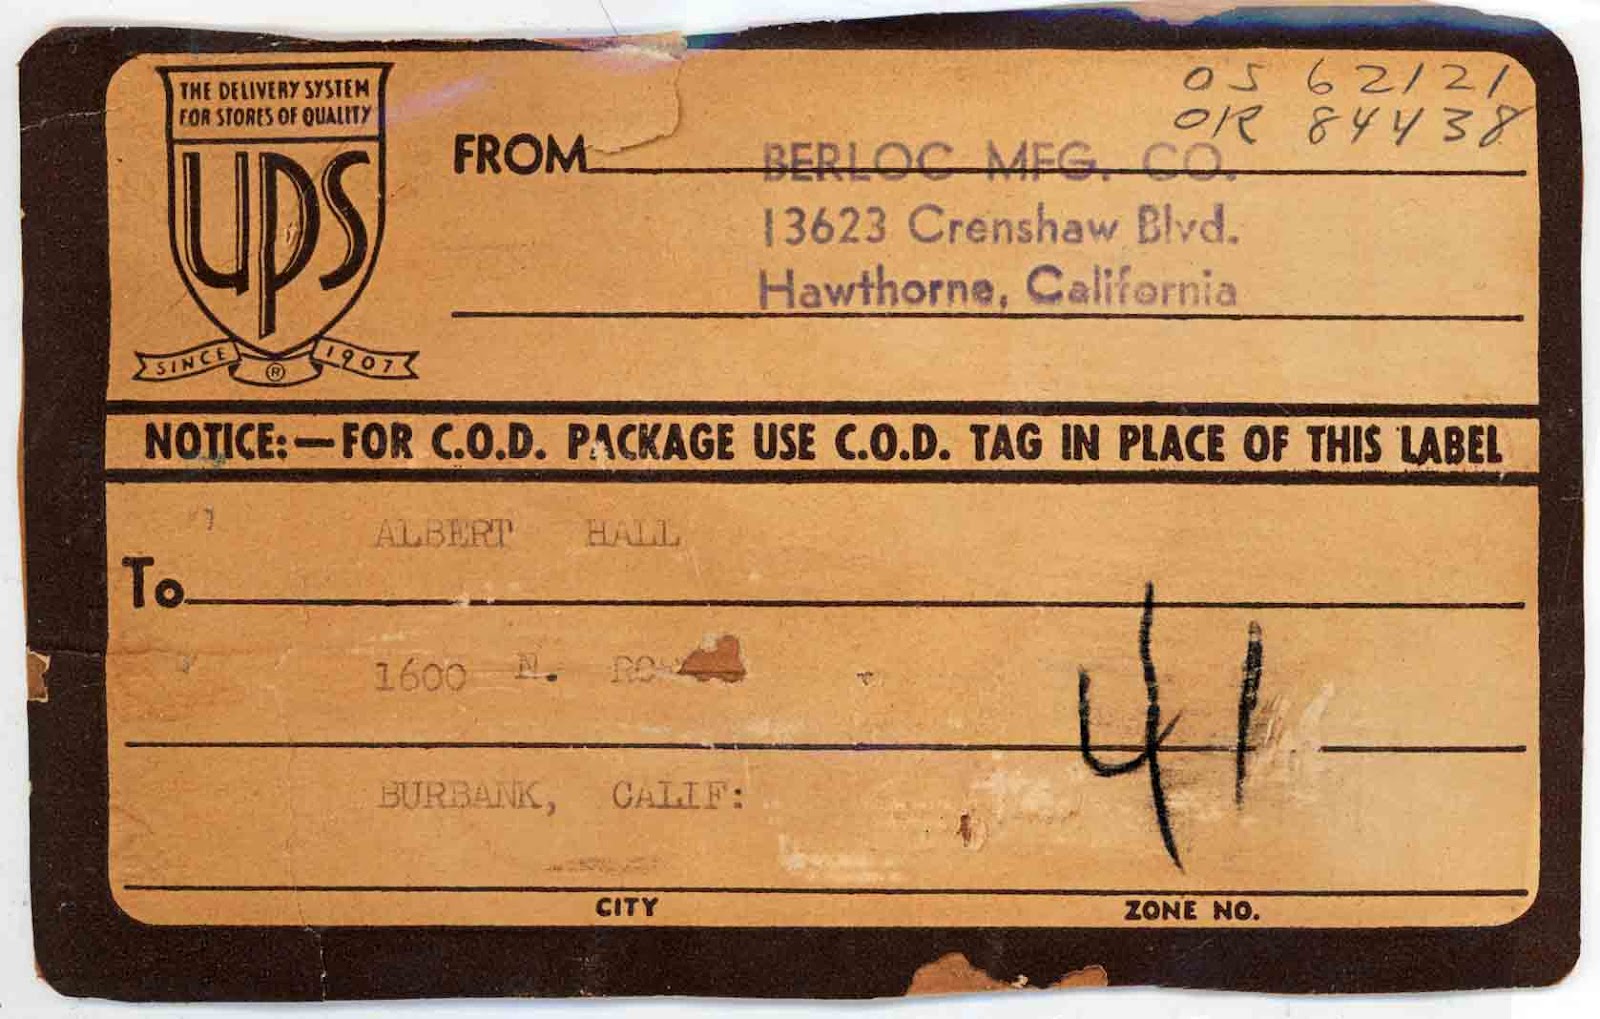 THE DELIVERY SYSTEM
FOR STORES OF QUALITY
UPS
SINCE ® 1907
OS 62121
OR 84438
FROM BERLOC MFG. CO.
13623 Crenshaw Blvd.
Hawthorne, California
NOTICE:—FOR C.O.D. PACKAGE USE C.O.D. TAG IN PLACE OF THIS LABEL
ALBERT HALL
To
1600 N.
41
BURBANK, CALIF:
CITY ZONE NO.